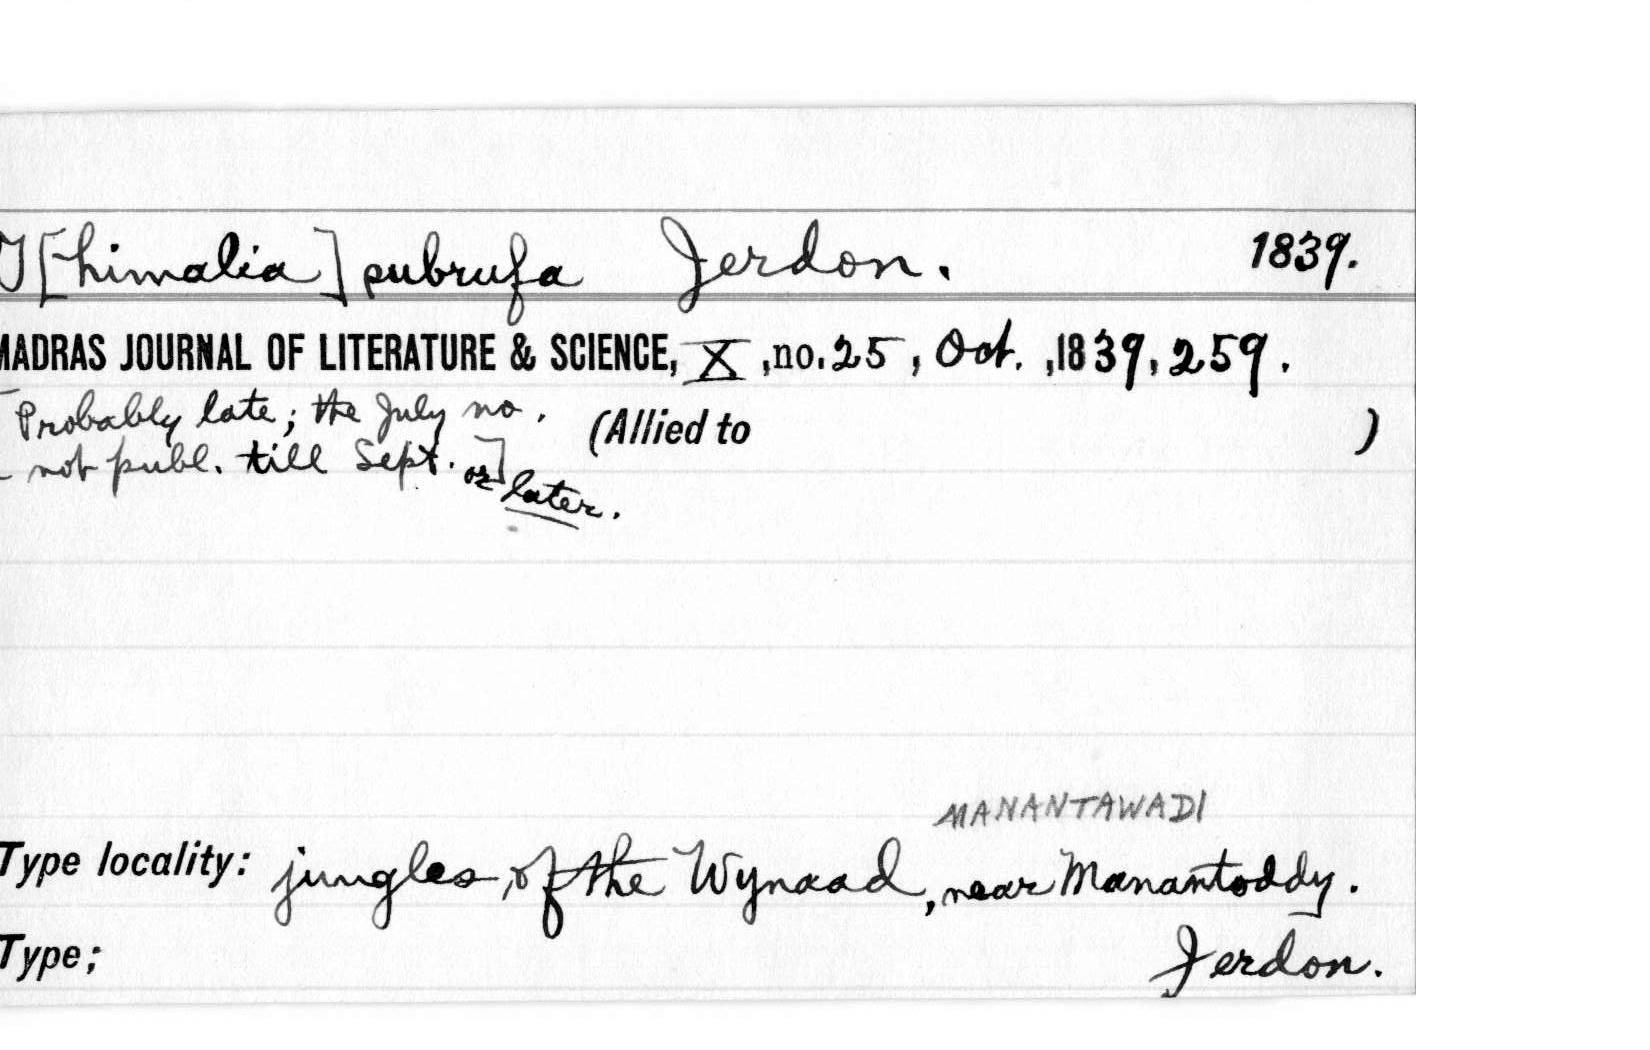 T[himalia] subrufa Jerdon. 1839.
MADRAS JOURNAL OF LITERATURE & SCIENCE, X, no. 25, Oct., 1839, 259.
[Probably late; the July no. (Allied to )
not publ. till Sept.] or later.
MANANTAWADI
Type locality: jungles of the Wynaad, near Manantoddy.
Type; Jerdon.